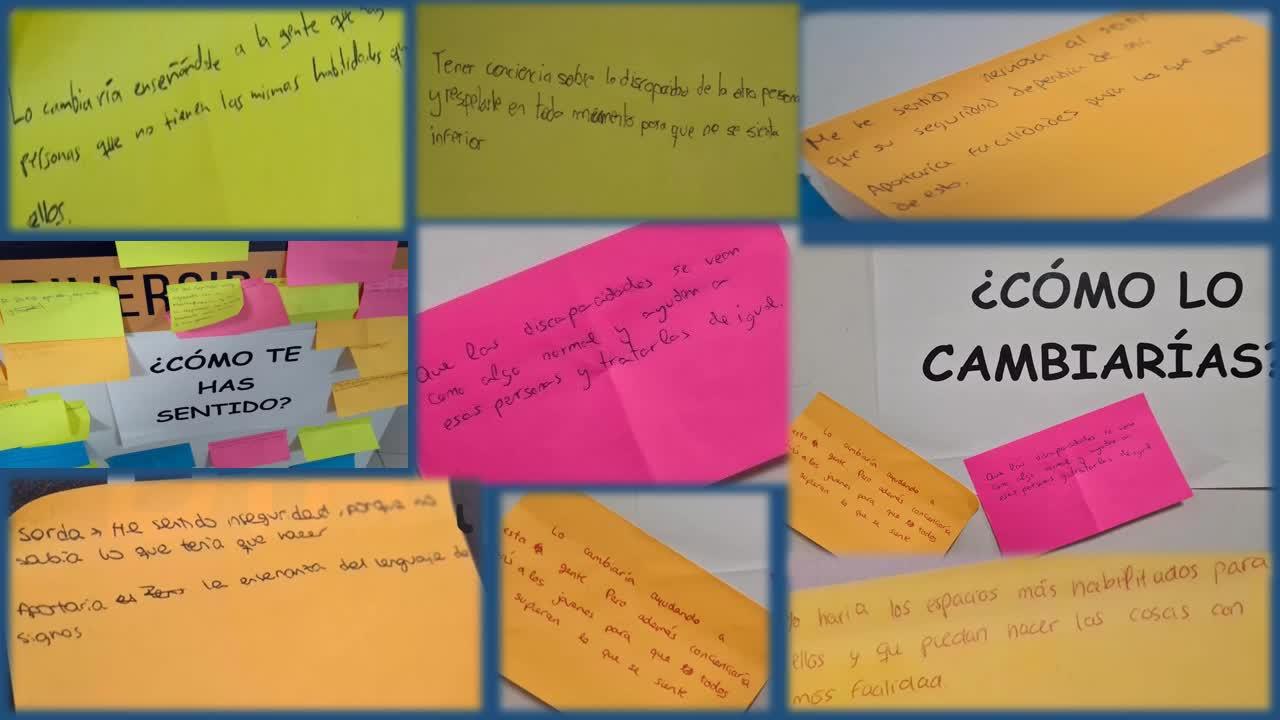 Lo cambiaría enseñándole a la gente que hay
personas que no tienen las mismas habilidades que
ellos.
Tener conciencia sobre la discapacidad de la otra persona
y respetarle en todo momento para que no se sienta
inferior
Me he sentido nerviosa al
que su seguridad dependía de mi.
Aportaría facilidades para los que
de esto.
¿CÓMO TE
HAS
SENTIDO?
Que las discapacidades se vean
como algo normal y ayudar a
esas personas y tratarlas de igual.
¿CÓMO LO
CAMBIARÍAS?
Lo cambiaría ayudando a
esta gente. Pero además concienciaría
a los jóvenes para que todos
supieran lo que se siente
Que las discapacidades se vean
como algo normal y ayudar a
esas personas y tratarlas de igual
Sorda → Me sentido inseguridad, porque no
sabía lo que tenía que hacer
Aportaria la enseñanza del lenguaje de
signos
Lo cambiaría ayudando a
esta gente. Pero además concienciaría
a los jóvenes para que todos
supieran lo que se siente
Yo haría los espacios más habilitados para
ellos y que puedan hacer las cosas con
más facilidad.